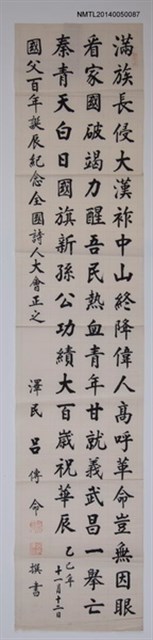 NMTL20140050087
滿族長侵大漢祚中山終降偉人高呼革命豈無因眼
看家國破竭力醒吾民熱血青年甘就義武昌一舉亡
秦青天白日國旗新孫公功績大百歲祝華辰
乙巳年
十一月十二日
國父百年誕辰紀念全國詩人大會正之
澤民 呂傳命 撰書